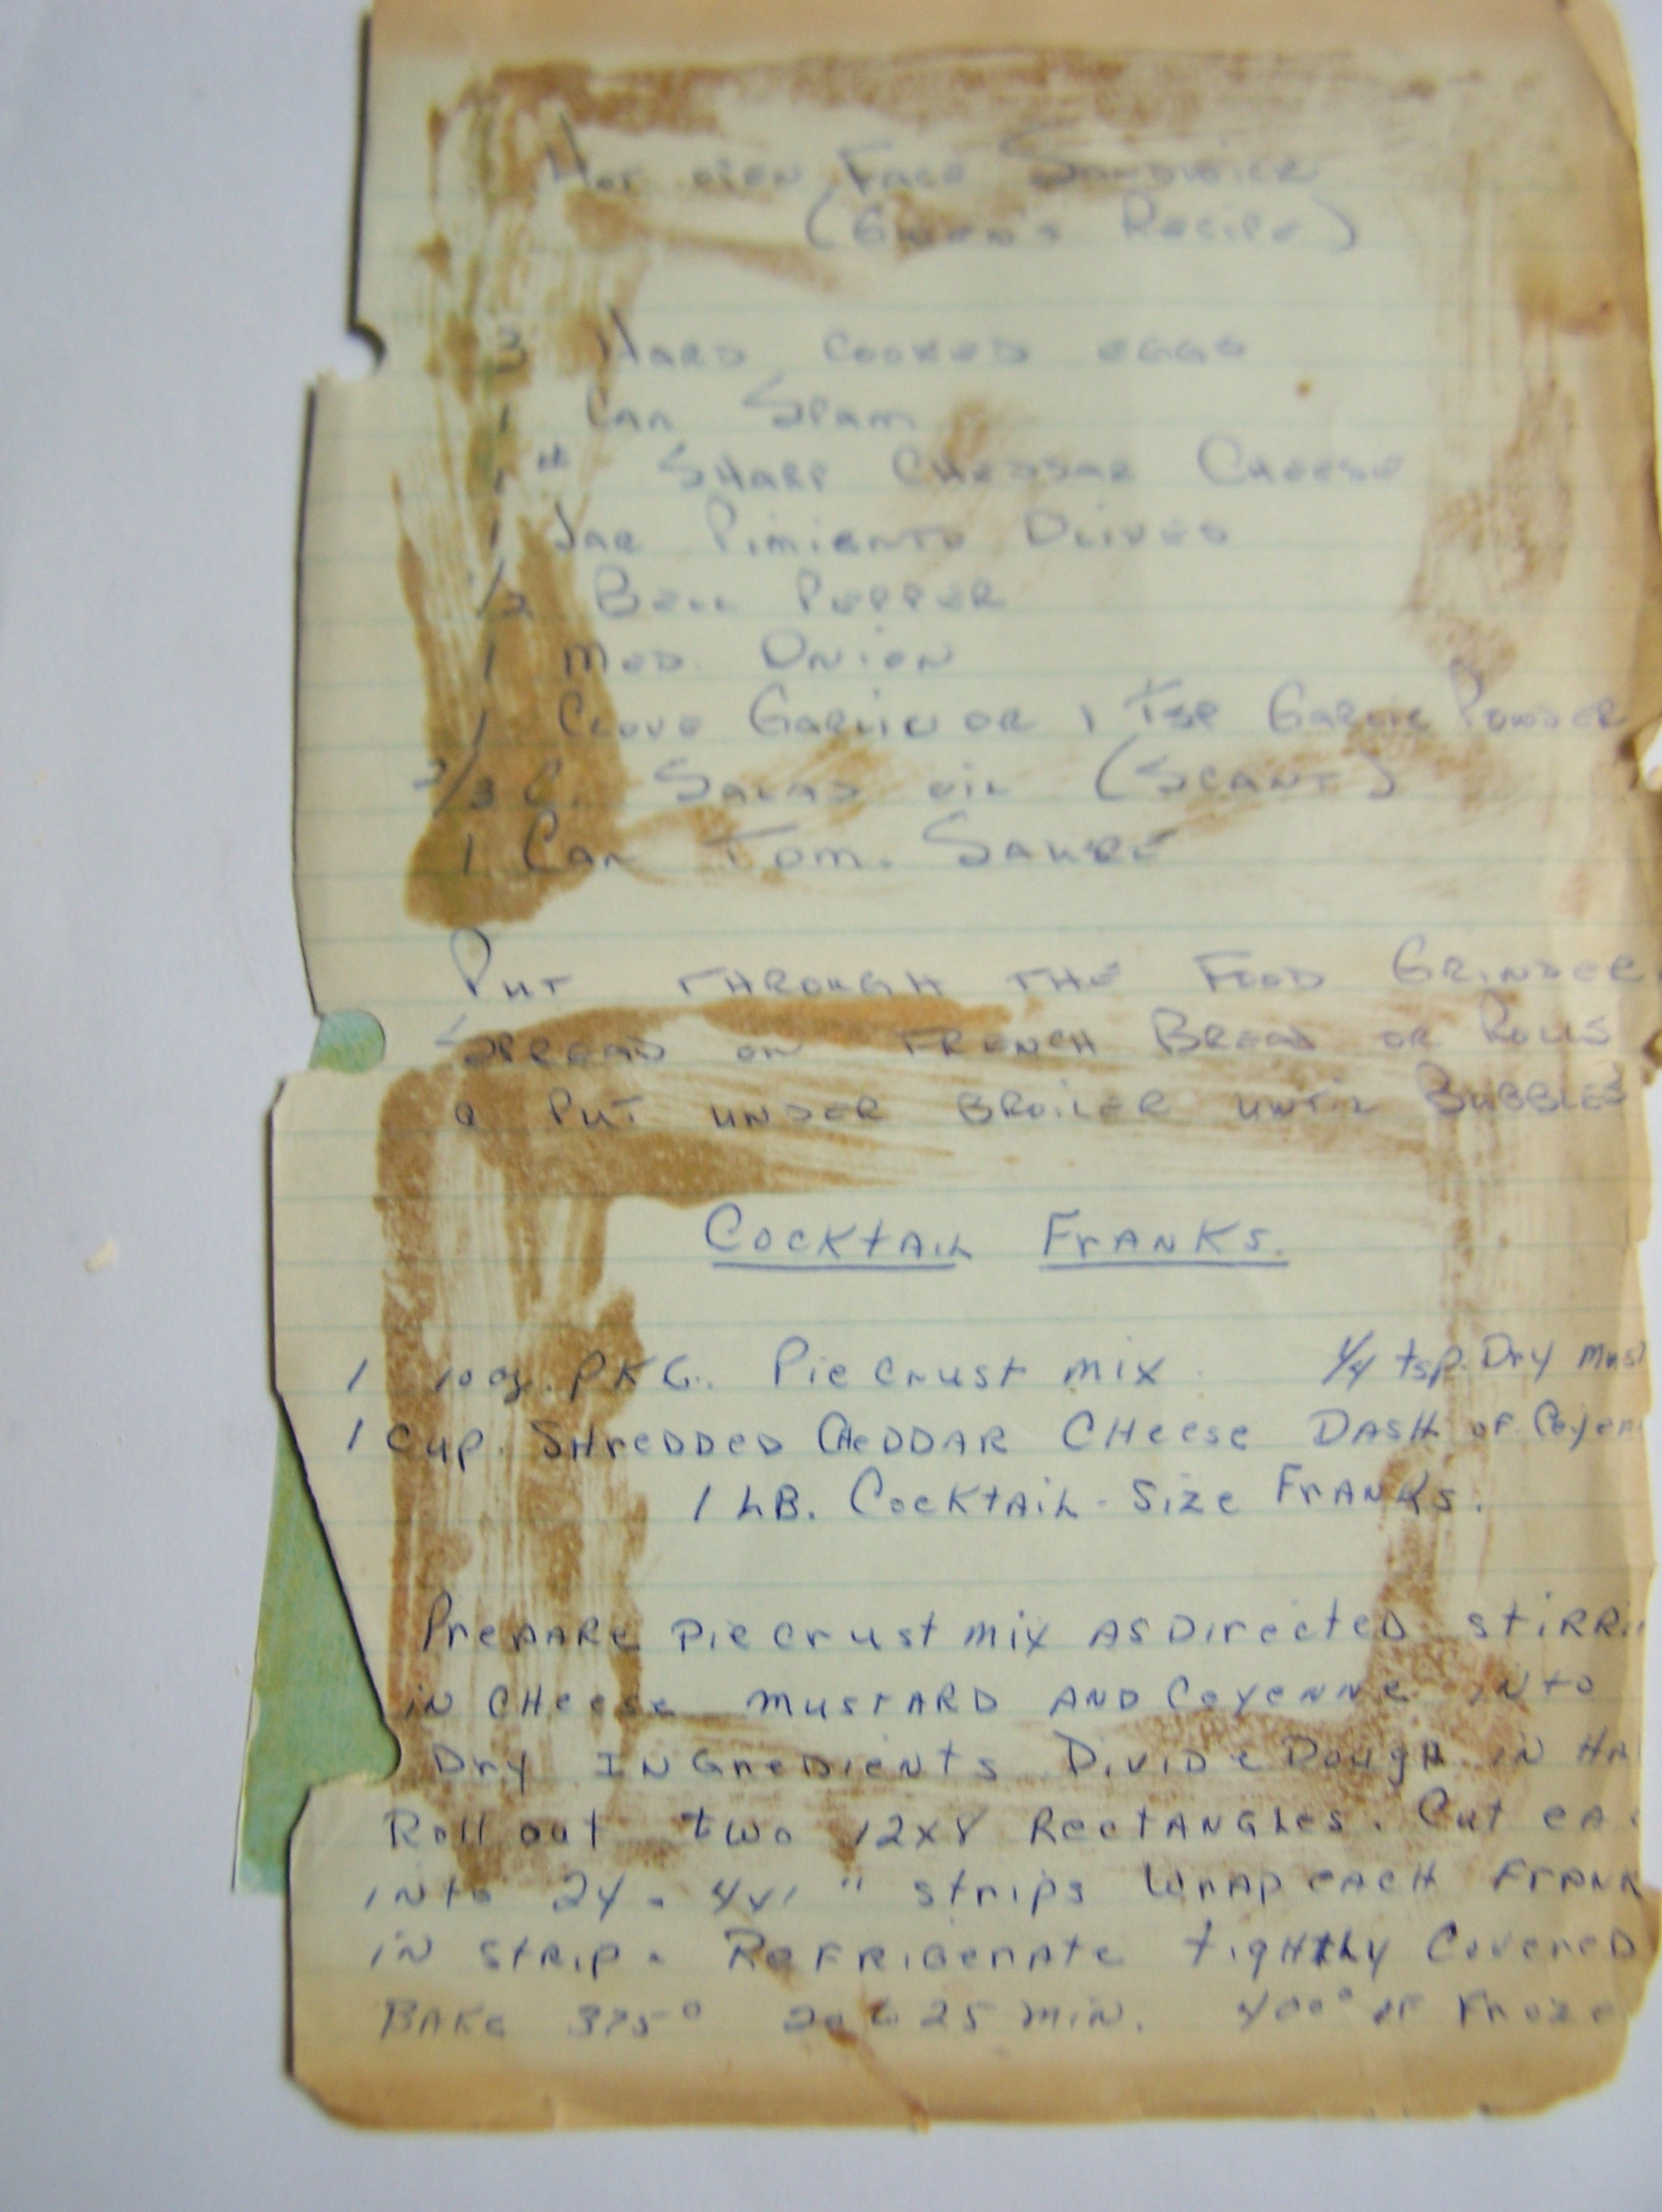 Hot open Face Sandwich
(Gwen's Recipe)
3 Hard cooked eggs
1 Can Spam
1# Sharp Cheddar Cheese
1 Jar Pimiento Olives
1/2 Bell Pepper
1 Med. Onion
1 Clove Garlic or 1 Tsp Garlic Powder
2/3 C. Salad oil (Scant)
1 Can Tom. Sauce
Put through the Food Grinder
Spread on French Bread or Rolls
& Put under broiler until Bubbles
Cocktail Franks.
1 10 oz. PKG. Pie Crust mix 1/4 tsp. Dry Must
1 Cup. Shredded Cheddar Cheese Dash of Cayen
1 LB. Cocktail-Size Franks.
Prepare pie crust mix as Directed stirri
in cheese mustard and Cayenne into
Dry Ingredients Divide Dough in Ha
Roll out two 12x8 Rectangles. Cut eac
into 24 - 4x1" strips Wrap each Frank
in strip. Refrigerate tightly Covered
Bake 375° 20 to 25 min. 400° if Froze